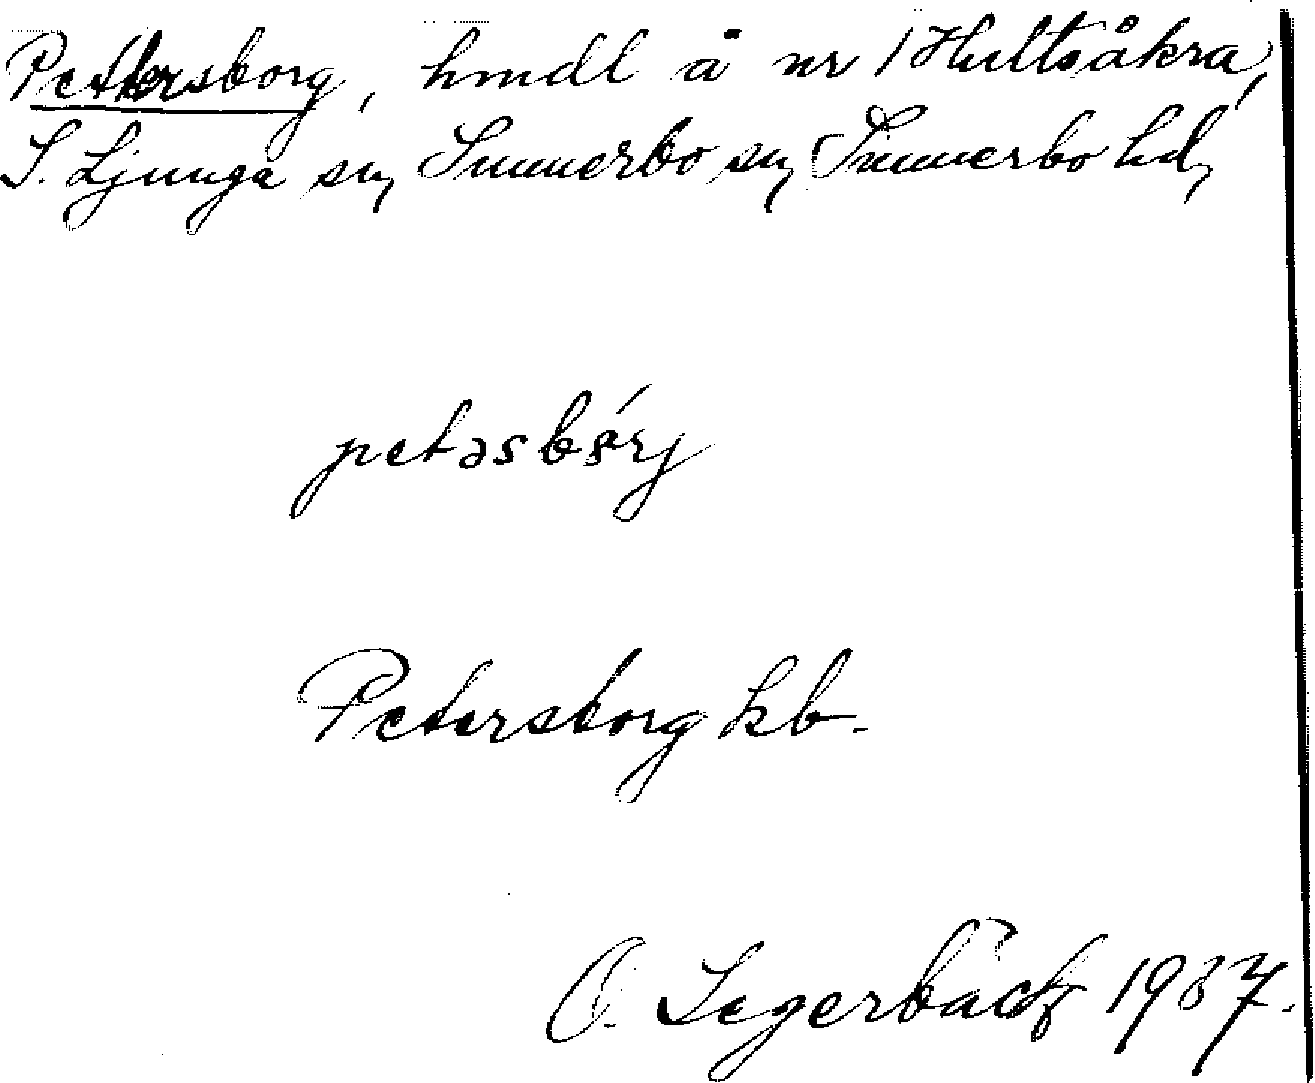 Petersborg, hmdl å nr 1 Hultsåkra,
S. Ljunga sn, Sunnerbo sn, Sunnerbo hd,
petəsbórj
Petersborg kb.
O. Segerbäck 1937.